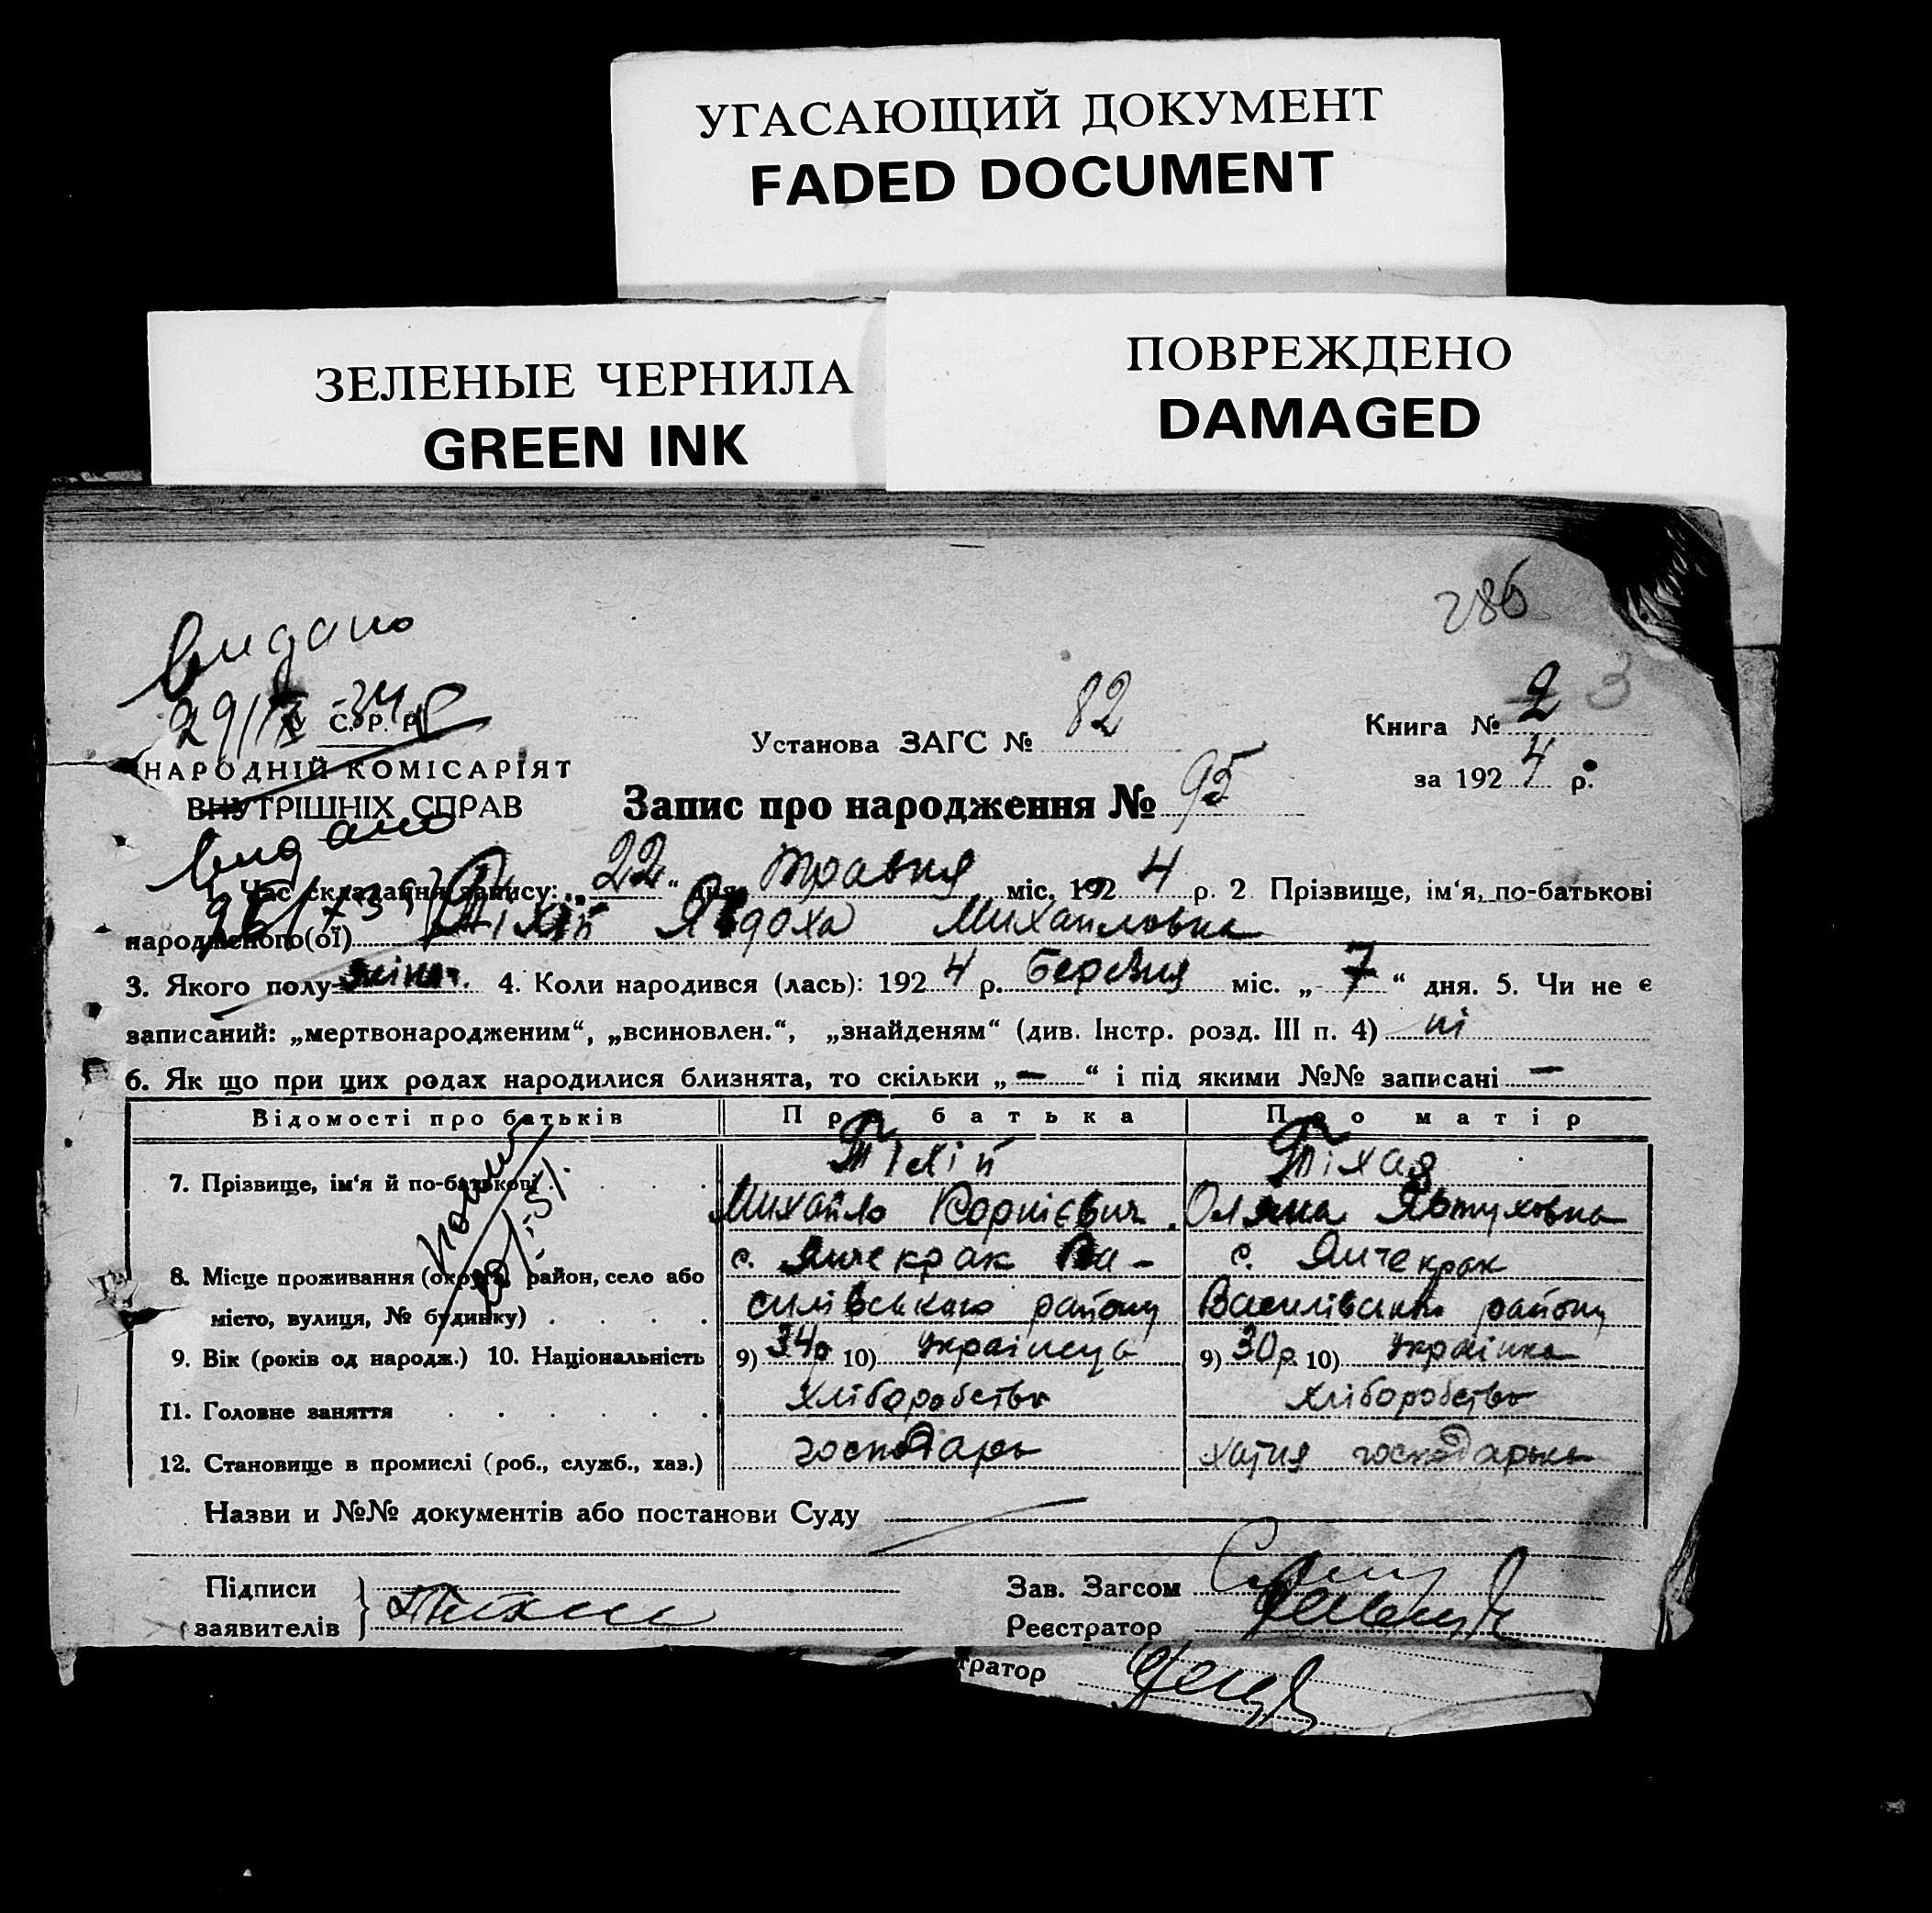 УГАСАЮЩИЙ ДОКУМЕНТ
FADED DOCUMENT
ЗЕЛЕНЫЕ ЧЕРНИЛА
GREEN INK
ПОВРЕЖДЕНО
DAMAGED
286
видано
29/ 34
С. Р. Р.
НАРОДНІЙ КОМІСАРІЯТ
ВНУТРІШНІХ СПРАВ
Установа ЗАГС № 82
Книга № 2 3
за 1924 р.
Запис про народження № 95
видано
1. Час складання запису: „22“ дня травня міс. 1924 р. 2 Прізвище, ім‘я, по-батькові
народженого(ої) Тіхій Явдоха Михайловна
3. Якого полу жіноч. 4. Коли народився (лась): 1924 р. березня міс. „7“ дня. 5. Чи не є
записаний: „мертвонародженим“, „всиновлен.“, „знайденям“ (див. Інстр. розд. III п. 4) ні
6. Як що при цих родах народилися близнята, то скільки „—“ і під якими №№ записані —
Відомості про батьків Про батька Про матір
7. Прізвище, ім‘я й по-батькові Тіхій Тіхая
Михайло Корнієвич Оляна Явтуховна
8. Місце проживання (округа, район, село або с. Янчекрак Ва- с. Янчекрак
місто, вулиця, № будинку) силівського району Василівського району
9. Вік (років од народж.) 10. Національність 9) 34р. 10) Українець 9) 30р. 10) Українка
11. Головне заняття хліборобство хліборобство
12. Становище в промислі (роб., служб., хаз.) господарь хатня господарька
Назви и №№ документів або постанови Суду
Підписи
заявителів
Зав. Загсом
Реєстратор
тратор